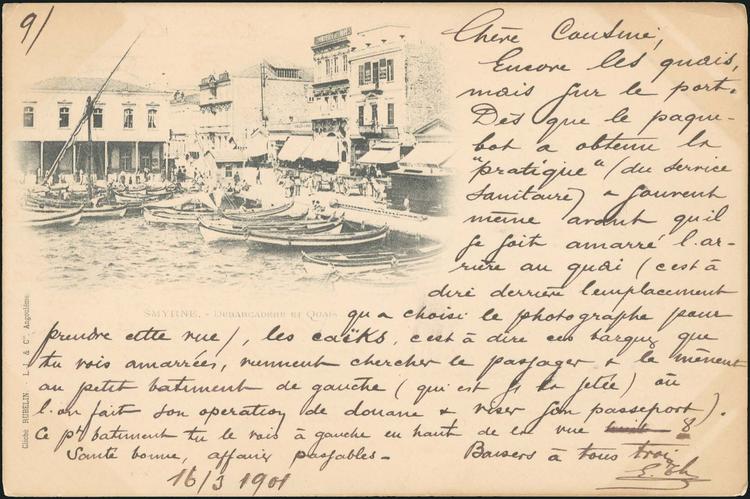 9/
Chère Cousine,
Encore les quais,
mais sur le port.
Dès que le paque-
bot a obtenu la
"pratique" (du service
sanitaire) & souvent
même avant qu'il
se soit amarré l'ar-
rière au quai (c'est à
dire derrière l'emplacement
SMYRNE. - DÉBARCADÈRE ET QUAIS
qu'a choisi le photographe pour
prendre cette vue), les caïks, c'est à dire ces barques que
tu vois amarrées, viennent chercher le passager & le mènent
au petit batiment de gauche (qui est s/ la jetée) où
l'on fait son opération de douane & viser son passeport).
Ce pt batiment tu le vois à gauche en haut de la vue 8
Santé bonne, affaires passables - Baisers à tous trois
16/3 1901
Cliché RUBELLIN - L. J. & Cie, Angoulême